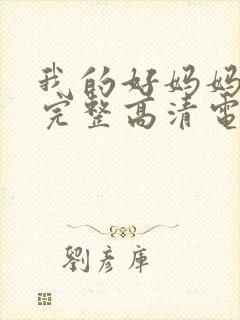 我的好妈妈
完整高清電
劉彦庫